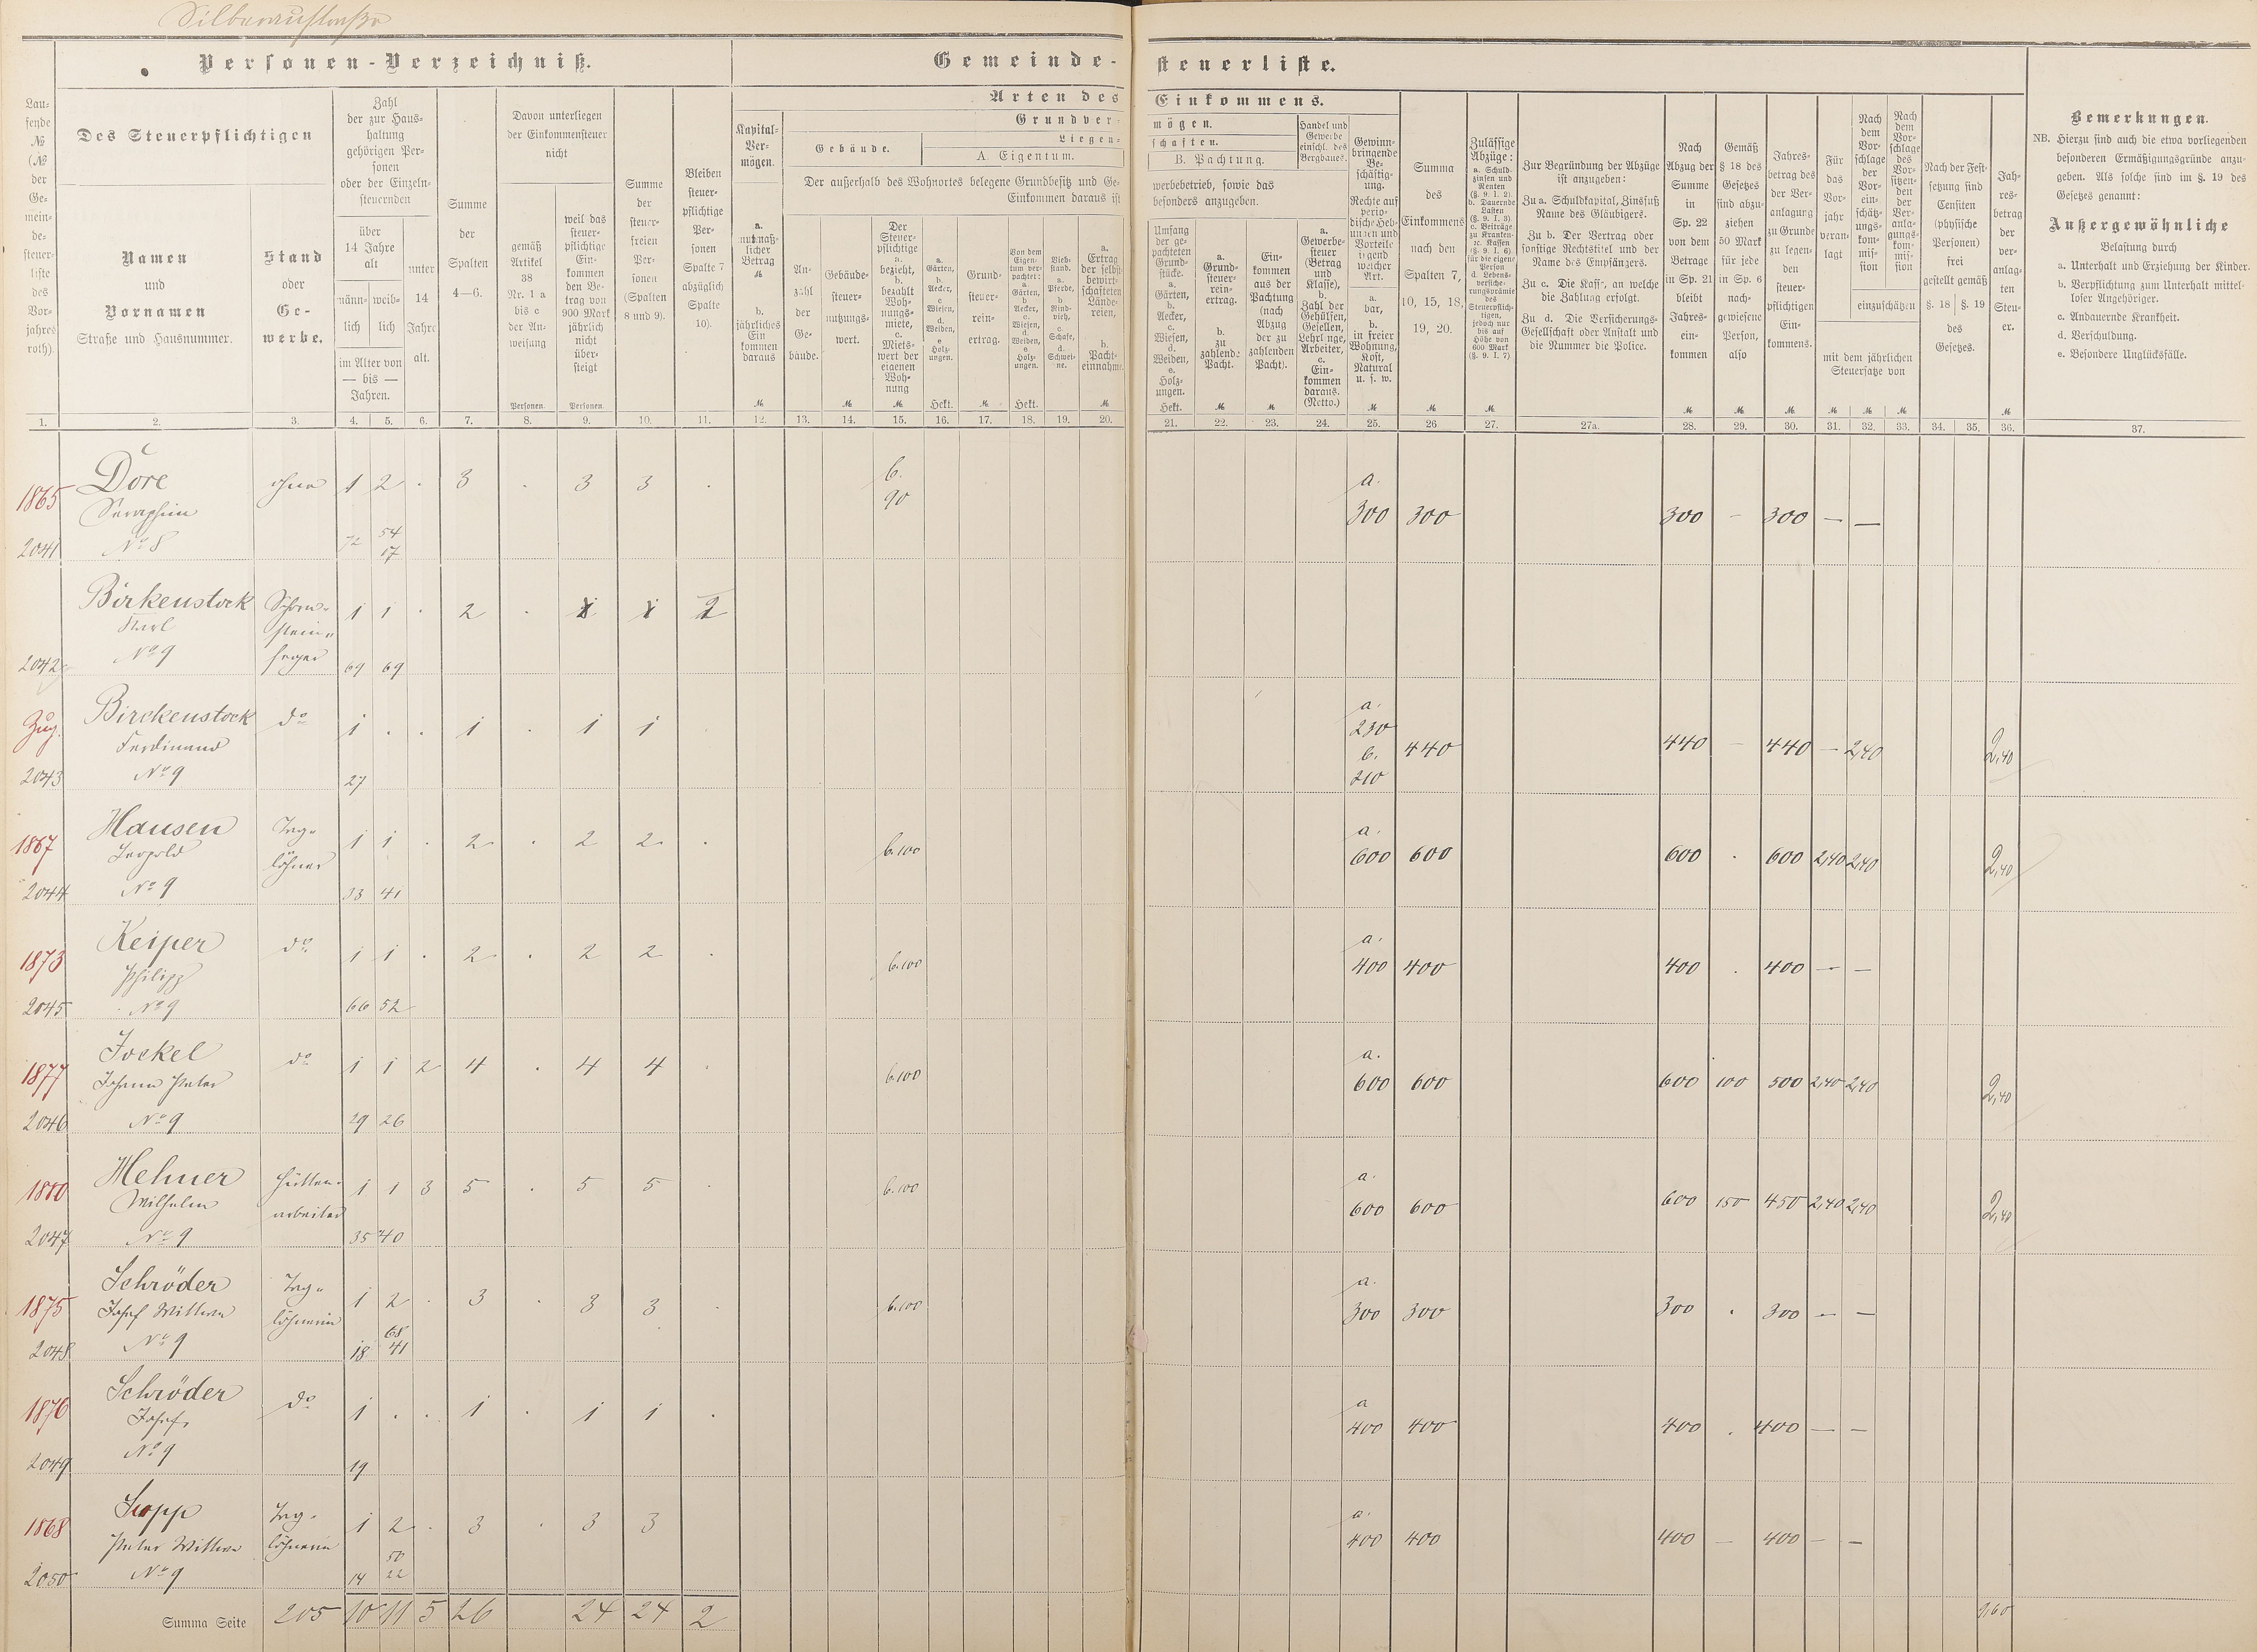 Silberaustraße
Personen-Verzeichniß.
Gemeinde-
steuerliste.
Laufende № (№ der Gemeindesteuerliste des Vorjahres roth).
Des Steuerpflichtigen
Namen
und
Vornamen
Straße und Hausnummer.
Stand
oder
Gewerbe.
Zahl
der zur Haus-
haltung
gehörigen Per-
sonen
oder der Einzeln-
steuernden
über
14 Jahre
alt
männ-
lich
weib-
lich
im Alter von
— bis —
Jahren.
unter
14
Jahre
alt.
Summe
der
Spalten
4—6.
Davon unterliegen
der Einkommensteuer
nicht
gemäß
Artikel
38
Nr. 1 a
bis c
der An-
weisung
Personen.
weil das
steuer-
pflichtige
Ein-
kommen
den Be-
trag von
900 Mark
jährlich
nicht
über-
steigt
Personen
Summe
der
steuer-
freien
Per-
sonen
(Spalten
8 und 9).
Bleiben
steuer-
pflichtige
Per-
sonen
Spalte 7
abzüglich
Spalte
10).
Arten des
Einkommens.
Kapital-
Ver-
mögen.
a.
muthmaß-
licher
Betrag
ℳ
b.
jährliches
Ein
kommen
daraus
ℳ
Grundver-
mögen.
Gebäude.
Liegen-
schaften.
A. Eigentum.
B. Pachtung.
Der außerhalb des Wohnortes belegene Grundbesitz und Ge-
werbebetrieb, sowie das
Einkommen daraus ist
besonders anzugeben.
An-
zahl
der
Ge-
bäude.
Gebäude-
steuer-
nutzungs-
wert.
ℳ
Der
Steuer-
pflichtige
a.
bezieht,
b.
bezahlt
Woh-
nungs-
miete,
c.
Miets-
wert der
eigenen
Woh-
nung
ℳ
a.
Gärten,
b.
Aecker,
c
Wiesen,
d.
Weiden,
e
Holz-
ungen.
Hekt.
Grund-
steuer-
rein-
ertrag.
ℳ
Von dem
Eigen-
tum ver-
pachtet:
a.
Gärten,
b.
Aecker,
c.
Wiesen,
d.
Weiden,
e
Holz-
ungen.
Hekt.
Vieh-
stand.
a.
Pferde,
b.
Rind-
vieh,
c.
Schafe,
d.
Schwei-
ne.
a.
Ertrag
der selbst-
bewirt-
schafteten
Lände-
reien,
b.
Pacht-
einnahme.
ℳ
Umfang
der ge-
pachteten
Grund-
stücke.
a.
Gärten,
b.
Aecker,
c.
Wiesen,
d.
Weiden,
e.
Holz-
ungen.
Hekt.
a.
Grund-
steuer-
rein-
ertrag.
b.
zu
zahlende
Pacht.
ℳ
Ein-
kommen
aus der
Pachtung
(nach
Abzug
der zu
zahlenden
Pacht).
ℳ
Handel und
Gewerbe
einschl. des
Bergbaues.
a.
Gewerbe-
steuer
(Betrag
und
Klasse),
b.
Zahl der
Gehülfen,
Gesellen,
Lehrlinge,
Arbeiter,
c.
Ein-
kommen
daraus.
(Netto.)
Gewinn-
bringende
Be-
schäftig-
ung.
Rechte auf
perio-
dische Heb-
ungen und
Vorteile
irgend
welcher
Art.
a.
bar,
b.
in freier
Wohnung,
Kost,
Natural
u. s. w.
ℳ
Summa
des
Einkommens
nach den
Spalten 7,
10, 15, 18,
19, 20.
ℳ
Zulässige
Abzüge:
a. Schuld-
zinsen und
Renten
(§. 9. I. 2).
b. Dauernde
Lasten
(§. 9. I. 3).
c. Beiträge
zu Kranken-
ic. Kassen
(§. 9. I. 6)
für die eigene
Person
d. Lebens-
versiche-
rungsprämie
des
Steuerpflich-
tigen,
jedoch nur
bis auf
Höhe von
600 Mark
(§. 9. I. 7)
ℳ
Zur Begründung der Abzüge
ist anzugeben:
Zu a. Schuldkapital, Zinsfuß
Name des Gläubigers.
Zu b. Der Vertrag oder
sonstige Rechtstitel und der
Name des Empfängers.
Zu c. Die Kasse, an welche
die Zahlung erfolgt.
Zu d. Die Versicherungs-
Gesellschaft oder Anstalt und
die Nummer die Police.
Nach
Abzug der
Summe
in
Sp. 22
von dem
Betrage
in Sp. 21
bleibt
Jahres-
ein-
kommen
ℳ
Gemäß
§ 18 des
Gesetzes
sind abzu-
ziehen
50 Mark
für jede
in Sp. 6
nach-
gewiesene
Person,
also
ℳ
Jahres-
betrag des
der Ver-
anlagung
zu Grunde
zu legen-
den
steuer-
pflichtigen
Ein-
kommens.
ℳ
Für
das
Vor-
jahr
veran-
lagt
ℳ
Nach
dem
Vor-
schlage
der
Vor-
ein-
schätz-
ungs-
kom-
mis-
sion
Nach
dem
Vor-
schlage
des
Vor-
sitzen-
den
der
Ver-
anla-
gungs-
kom-
mis-
sion
einzuschätzen
mit dem jährlichen
Steuersatze von
ℳ ℳ
Nach der Fest-
setzung sind
Censiten
(physische
Personen)
frei
gestellt gemäß
§. 18 §. 19
des
Gesetzes.
Jah-
res-
betrag
der
ver-
anlag-
ten
Steu-
er.
ℳ
Bemerkungen.
NB. Hierzu sind auch die etwa vorliegenden
besonderen Ermäßigungsgründe anzu-
geben. Als solche sind im §. 19 des
Gesetzes genannt:
Außergewöhnliche
Belastung durch
a. Unterhalt und Erziehung der Kinder.
b. Verpflichtung zum Unterhalt mittel-
loser Angehöriger.
c. Andauernde Krankheit.
d. Verschuldung.
e. Besondere Unglücksfälle.
1. 2. 3. 4. 5. 6. 7. 8. 9. 10. 11. 12. 13. 14. 15. 16. 17. 18. 19. 20. 21. 22. 23. 24. 25. 26 27. 27a. 28. 29. 30. 31. 32. 33. 34. 35. 36. 37.
1865 Doré ohne 1 2 . 3 . 3 3 . b. a.
Seraphim 90 300 300 300 – 300 — —
2041 No 8 72 54
17
Birkenstock Schorn- 1 1 . 2 . 1 1 2
Karl stein-
2042 No 9 feger 69 69
Zug. Birckenstock do 1 . . 1 . 1 1 a.
Ferdinand 230 440 440 – 440 – 2,40 2,40
b.
2043 No 9 27 210
1867 Hausen Tag- 1 1 . 2 . 2 2 . b. 100 a.
Leopold löhner 600 600 600 . 600 2,40 2,40 2,40
2044 No 9 33 41
1873 Keiper do 1 1 . 2 . 2 2 . b. 100 a.
Philipp 400 400 400 . 400 — —
2045 No 9 66 52
1877 Jockel do 1 1 2 4 . 4 4 . b. 100 a.
Johann Peter 600 600 600 100 500 2,40 2,40 2,40
2046 No 9 29 26
1880 Mehner Hütten- 1 1 3 5 . 5 5 . b. 100 a.
Wilhelm arbeiter 600 600 600 150 450 2,40 2,40 2,40
2047 No 9 35 40
1875 Schröder Tag- 1 2 . 3 . 3 3 . b. 100 a.
Josef Wittwe löhnerin 300 300 300 . 300 — —
68
2048 No 9 18 41
1876 Schröder do 1 . . 1 . 1 1 . a
Josef 400 400 400 . 400 — —
2049 No 9 19
1868 Sopp Tag- 1 2 . 3 . 3 3 a.
Peter Wittwe löhnerin 400 400 400 — 400 – —
50
2050 No 9 14 22
Summa Seite 205 10 11 5 26 24 24 2 9,60